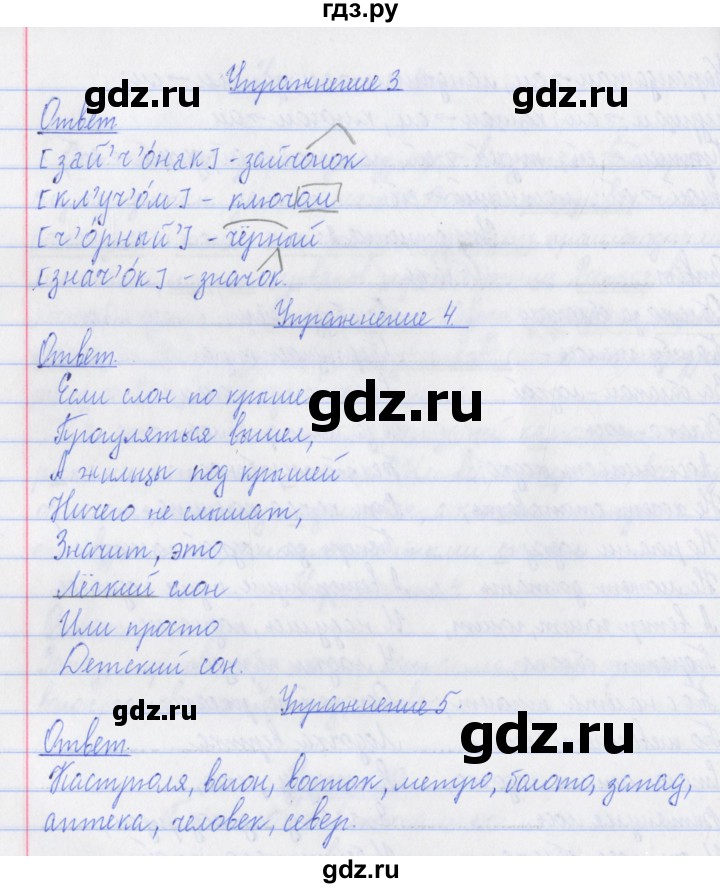 гдз.ру
Упражнение 3
gdz.ru
gdz.ru
Ответ
[зай'ч'о́нак] - зайчонок
[кл'уч'о́м] - ключом
[ч'о́рный'] - чёрный
[знач'о́к] - значок.
Упражнение 4.
Ответ.
Если слон по крыше
gdz.ru
Прогуляться вышел,
А жильцы под крышей
Ничего не слышат,
Значит, это
Лёгкий слон
Или просто
Детский сон.
Упражнение 5.
gdz.ru
gdz.ru
Ответ.
Кастрюля, вагон, восток, метро, болото, запад,
аптека, человек, север.
gdz.ru